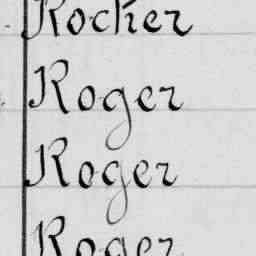 Rocher
Roger
Roger
Roger